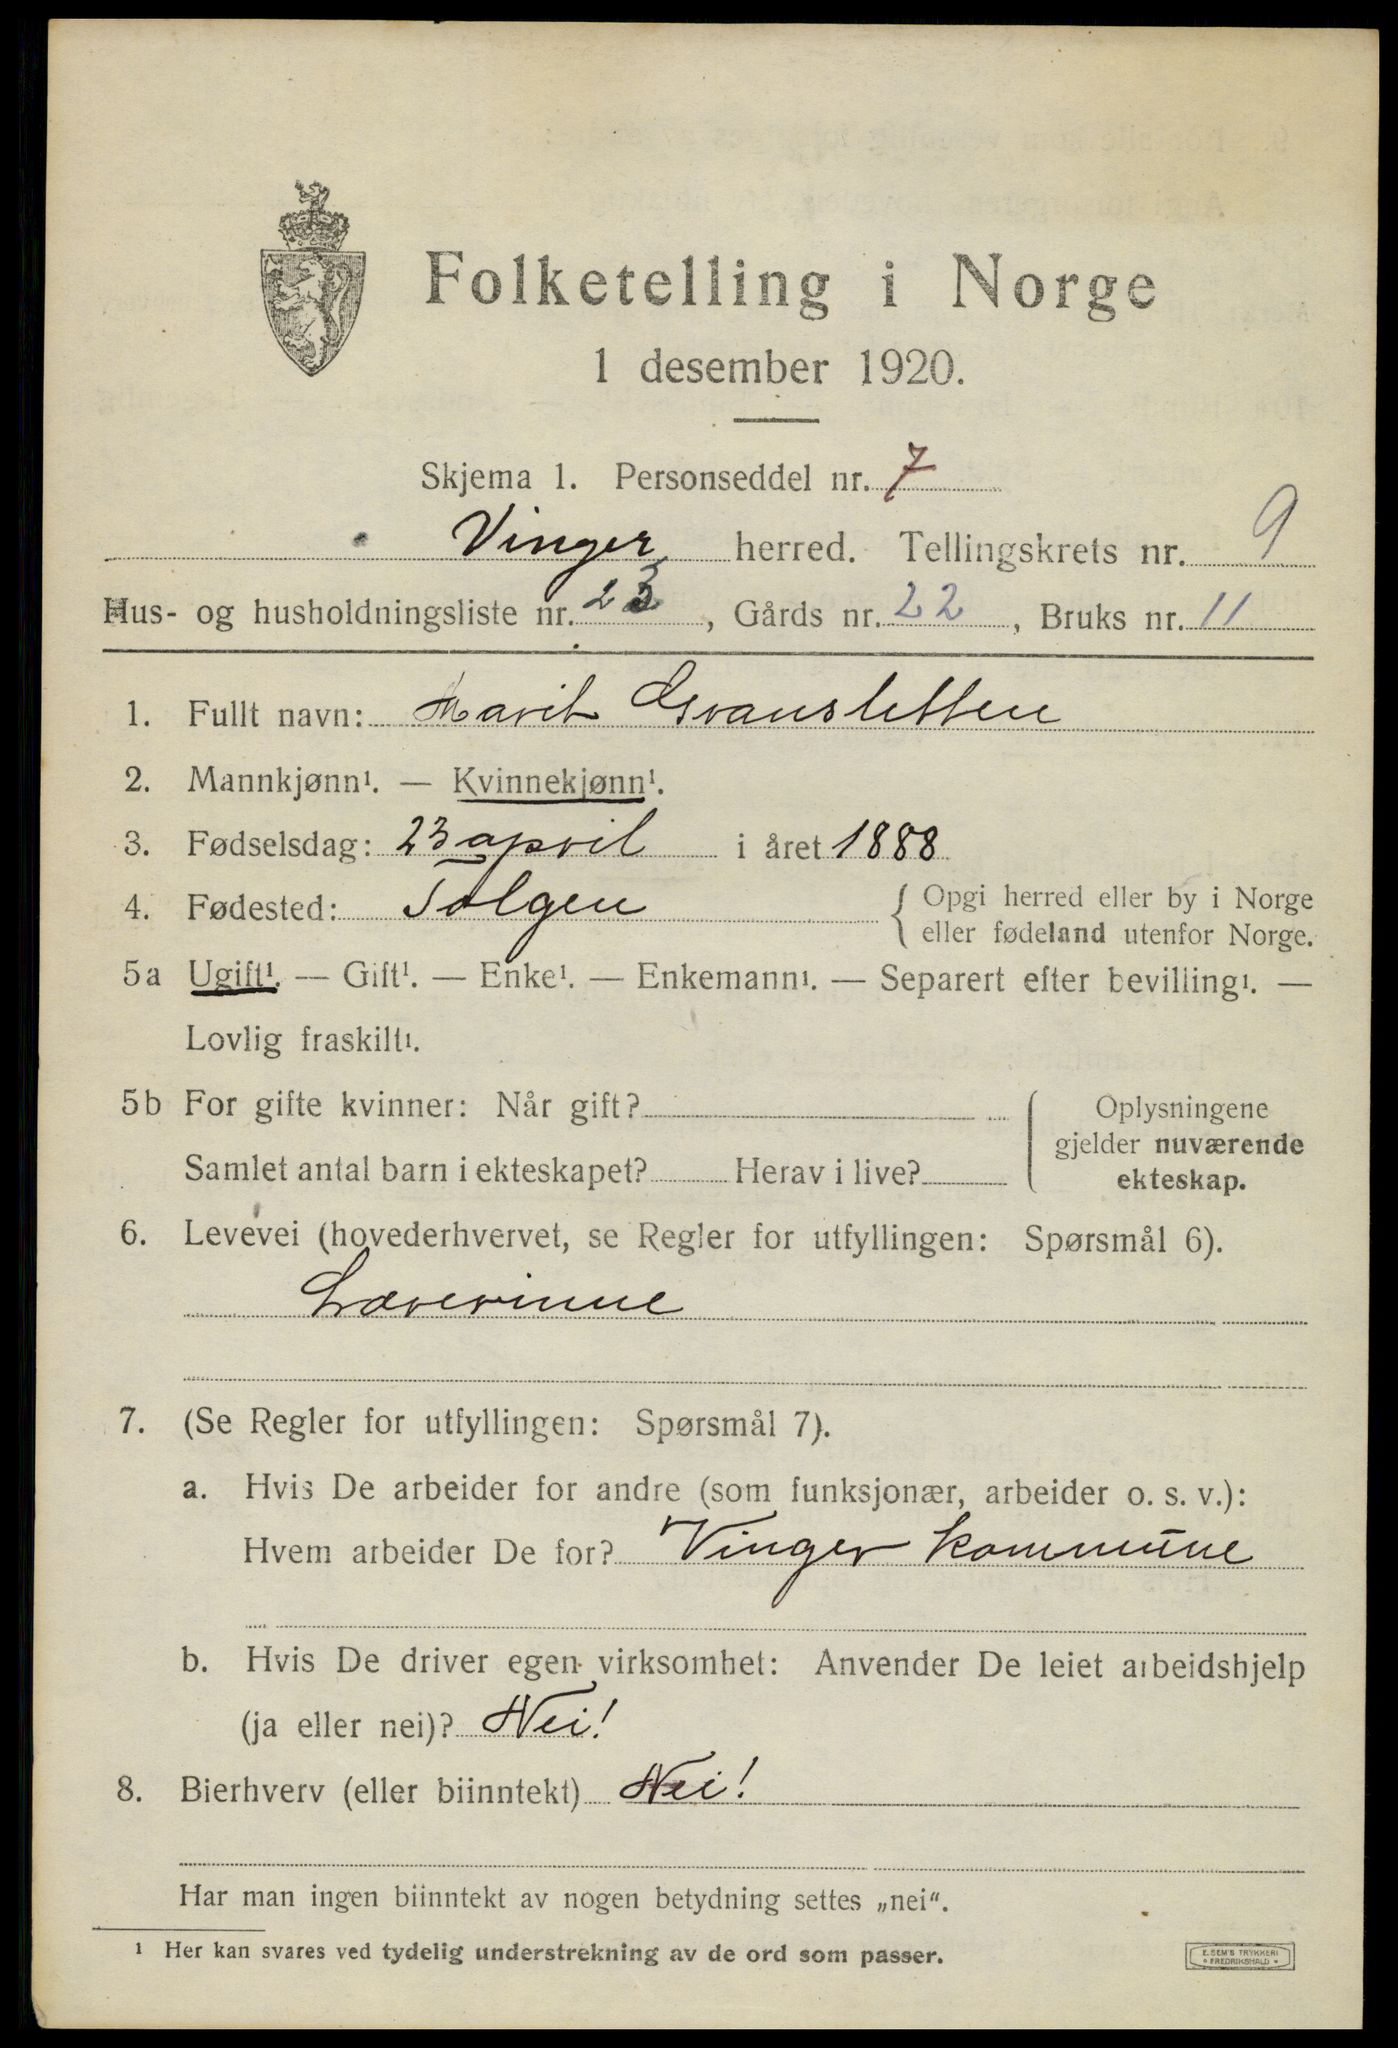 Folketelling i Norge
1 desember 1920.
Skjema 1. Personseddel nr. 7
Vinger herred. Tellingskrets nr. 9
Hus- og husholdningsliste nr. 23, Gårds nr. 22, Bruks nr. 11
1. Fullt navn: Marit Gransletten
2. Mannkjønn¹. — Kvinnekjønn¹.
3. Fødselsdag: 23 april i året 1888
4. Fødested: Tolgen { Opgi herred eller by i Norge
eller fødeland utenfor Norge.
5a Ugift¹. — Gift¹. — Enke¹. — Enkemann¹. — Separert efter bevilling¹. —
Lovlig fraskilt¹.
5b For gifte kvinner: Når gift?
Samlet antal barn i ekteskapet? Herav i live?
Oplysningene
gjelder nuværende
ekteskap.
6. Levevei (hovederhvervet, se Regler for utfyllingen: Spørsmål 6).
Lærerinne
7. (Se Regler for utfyllingen: Spørsmål 7).
a. Hvis De arbeider for andre (som funksjonær, arbeider o. s. v.):
Hvem arbeider De for? Vinger kommune
b. Hvis De driver egen virksomhet: Anvender De leiet arbeidshjelp
(ja eller nei)? Nei!
8. Bierhverv (eller biinntekt) Nei!
Har man ingen biinntekt av nogen betydning settes „nei“.
¹ Her kan svares ved tydelig understrekning av de ord som passer.
E. SEM'S TRYKKERI
* FREDRIKSHALD *